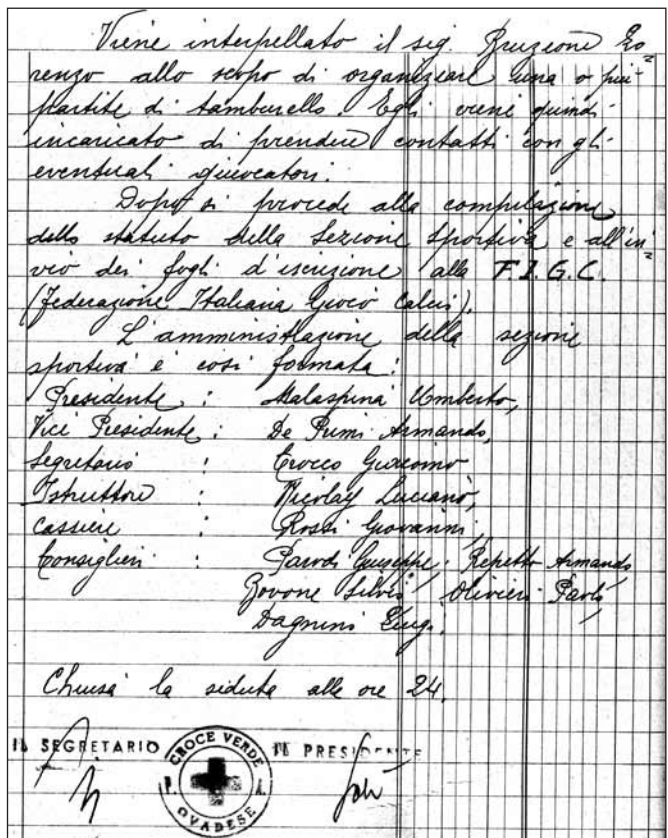 Viene interpellato il sig. Bruzzone Lo=
renzo allo scopo di organizzare una o più
partite di tamburello. Egli viene quindi
incaricato di prendere contatti con gli
eventuali giuocatori.
Dopo si procede alla compilazione
dello statuto della Sezione Sportiva e all'in=
vio dei fogli d'iscrizione alla F.I.G.C.
(Federazione Italiana Giuoco Calcio).
L'amministrazione della sezione
sportiva è così formata:
Presidente : Malaspina Umberto,
Vice Presidente : De Primi Armando,
Segretario : Grocco Giacomo
Istruttore : Nicolay Luciano,
Cassiere : Rossi Giovanni,
Consiglieri : Parodi Giuseppe, Repetto Armando,
Bovone Silvio, Olivieri Paolo,
Dagnini Luigi.
Chiusa la seduta alle ore 24.
IL SEGRETARIO CROCE VERDE IL PRESIDENTE
P. A.
OVADESE